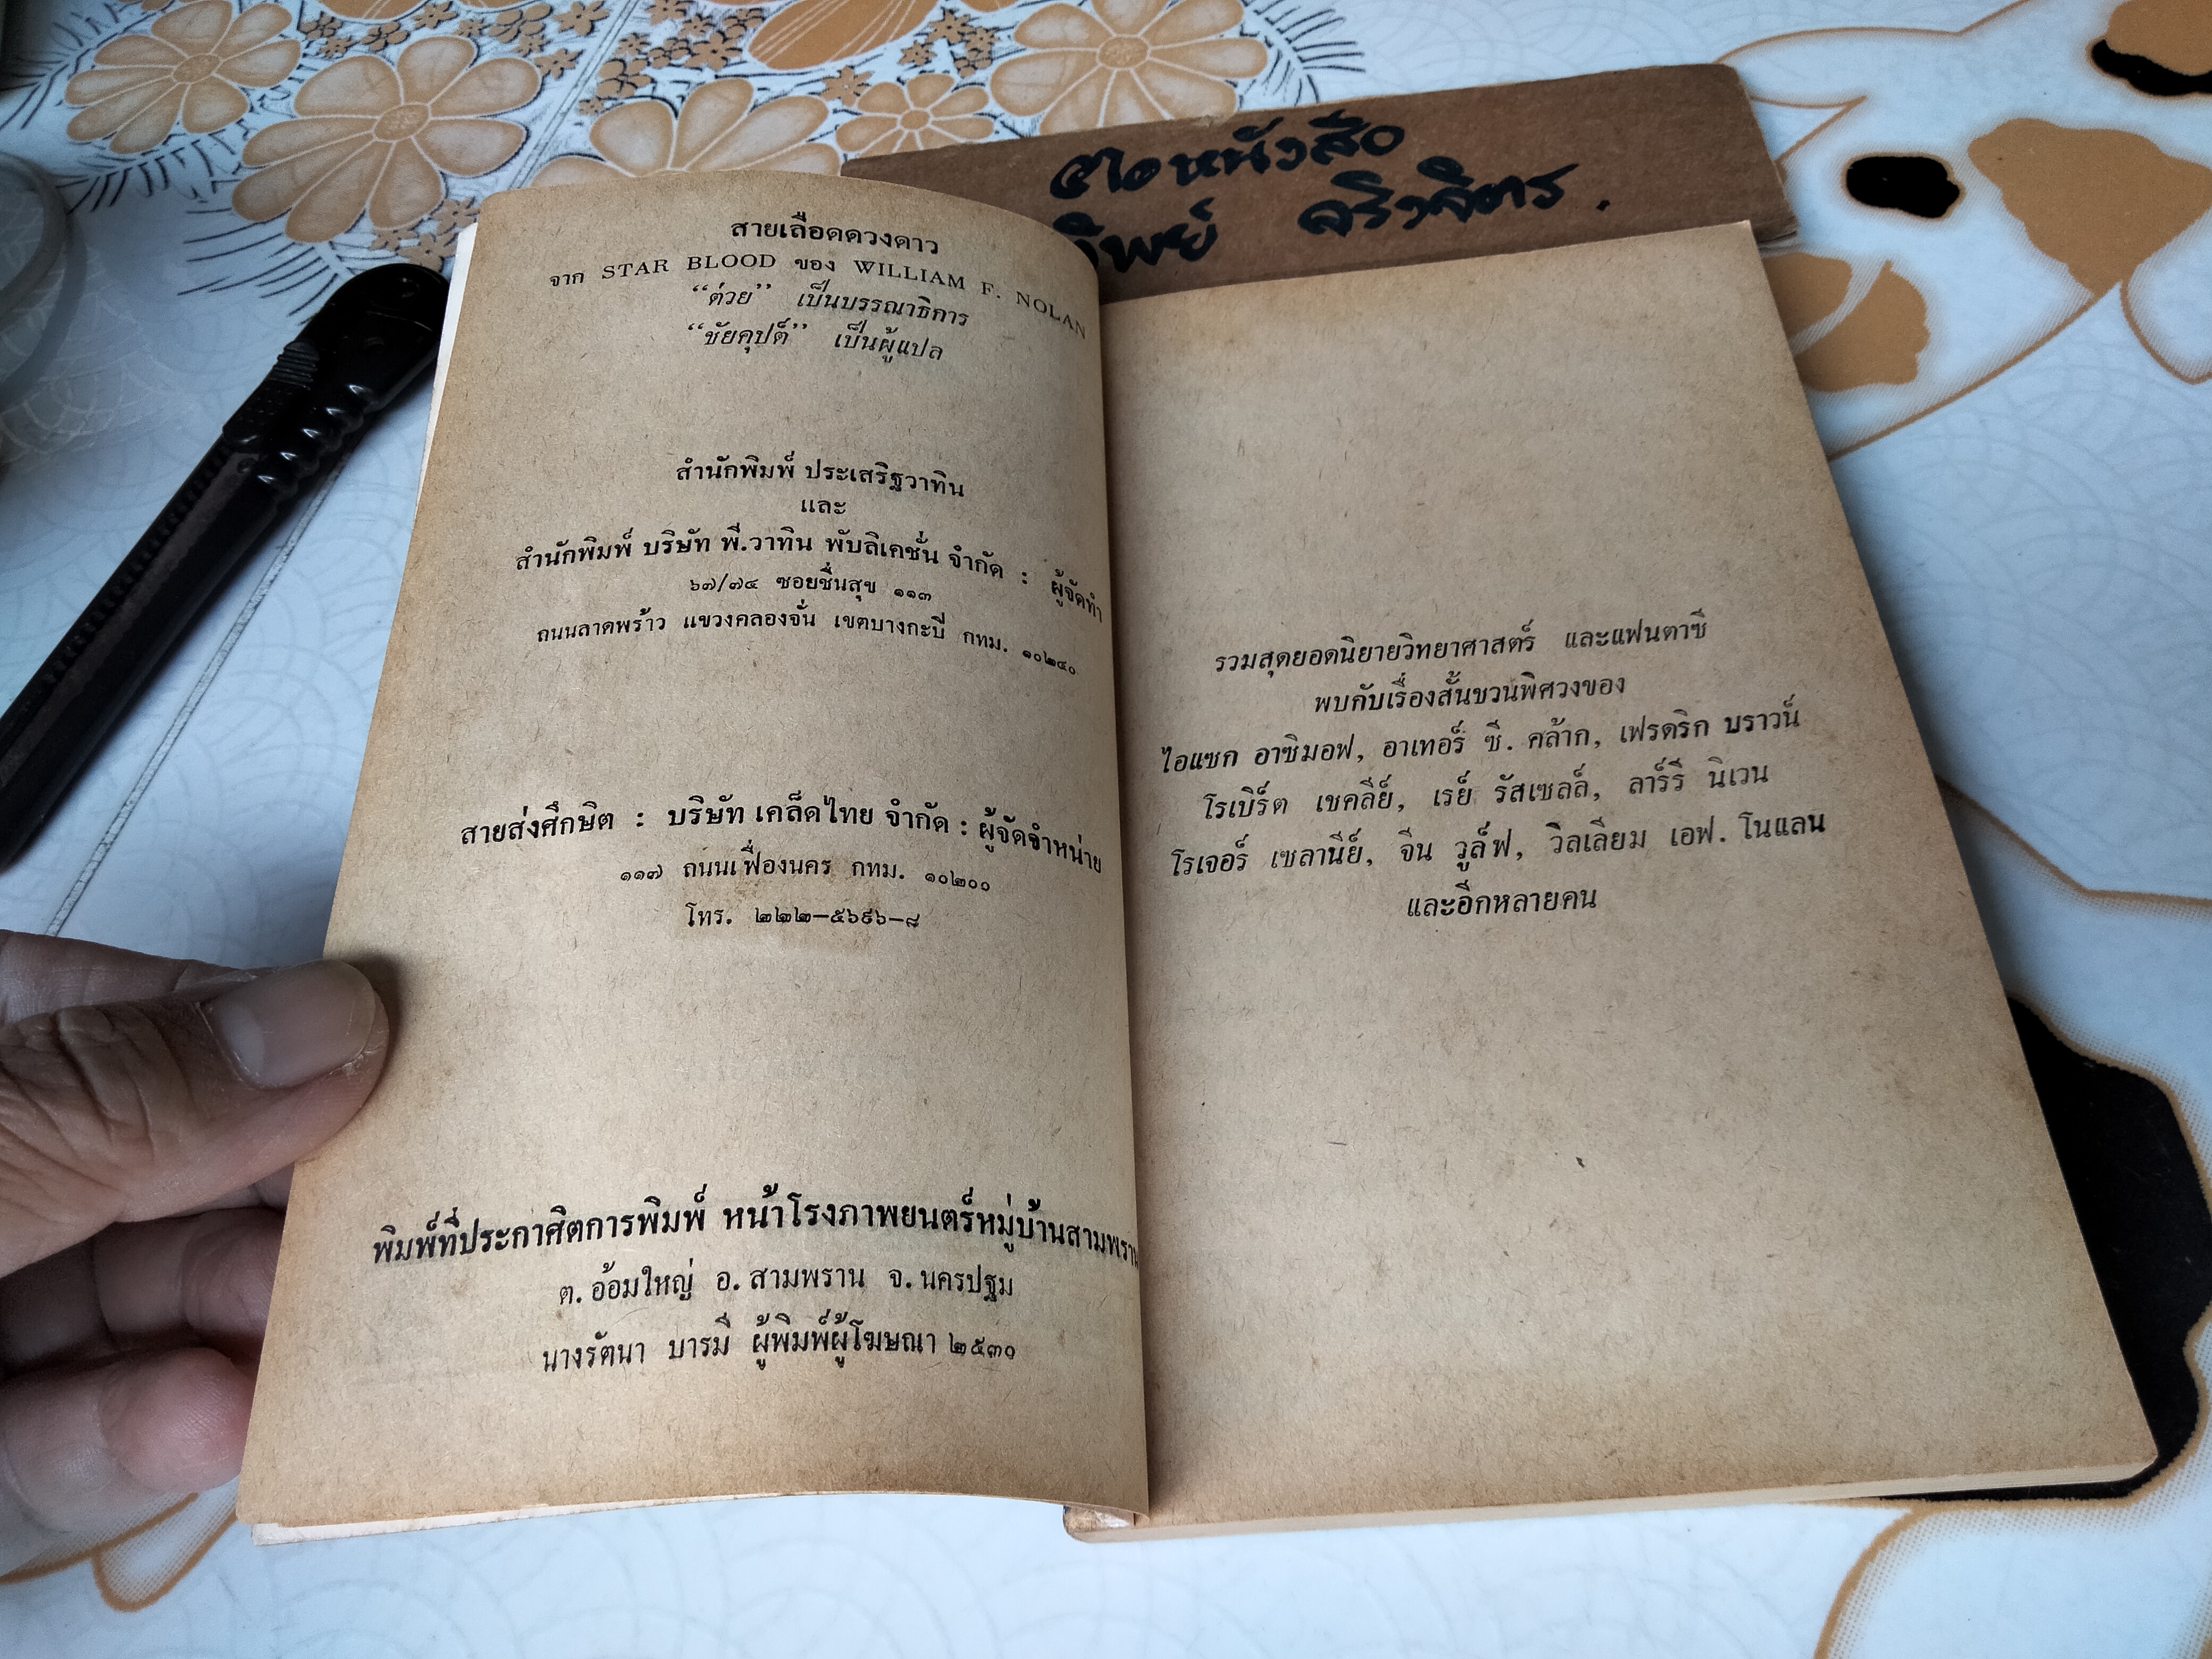 สายเลือดดวงดาว
จาก STAR BLOOD ของ WILLIAM F. NOLAN
“ต่วย” เป็นบรรณาธิการ
“ชัยคุปต์” เป็นผู้แปล
สำนักพิมพ์ ประเสริฐวาทิน
และ
สำนักพิมพ์ บริษัท พี.วาทิน พับลิเคชั่น จำกัด : ผู้จัดทำ
๖๗/๗๔ ซอยชื่นสุข ๑๑๓
ถนนลาดพร้าว แขวงคลองจั่น เขตบางกะปี กทม. ๑๐๒๔๐
สายส่งศึกษิต : บริษัท เคล็ดไทย จำกัด : ผู้จัดจำหน่าย
๑๑๗ ถนนเฟื่องนคร กทม. ๑๐๒๐๐
โทร. ๒๒๒–๕๖๙๖–๘
พิมพ์ที่ประกาศิตการพิมพ์ หน้าโรงภาพยนตร์หมู่บ้านสามพราน
ต. อ้อมใหญ่ อ. สามพราน จ. นครปฐม
นางรัตนา บารมี ผู้พิมพ์ผู้โฆษณา ๒๕๓๐
หนังสือ
ทิพย์ จริงจิตร.
รวมสุดยอดนิยายวิทยาศาสตร์ และแฟนตาซี
พบกับเรื่องสั้นชวนพิศวงของ
ไอแซก อาซิมอฟ, อาเทอร์ ซี. คล้าก, เฟรดริก บราวน์
โรเบิร์ต เชคลีย์, เรย์ รัสเซลล์, ลาร์รี นิเวน
โรเจอร์ เซลานีย์, จีน วูล์ฟ, วิลเลียม เอฟ. โนแลน
และอีกหลายคน